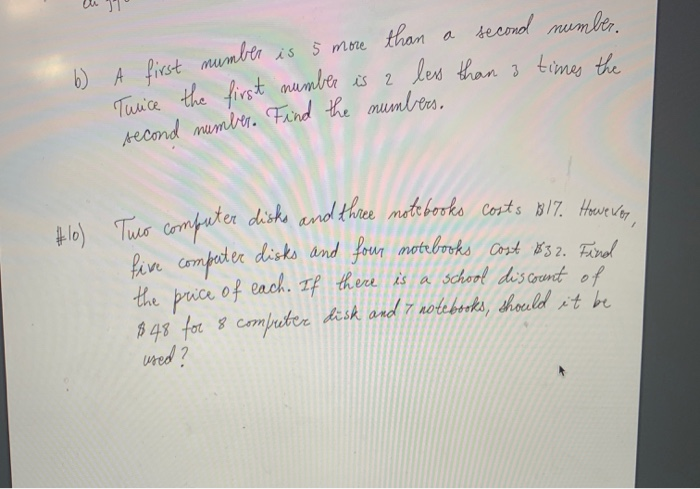 b) A first number is 5 more than a second number.
Twice the first number is 2 less than 3 times the
second number. Find the numbers.
#10) Two computer disks and three notebooks costs $17. However,
five computer disks and four notebooks cost $32. Find
the price of each. If there is a school discount of
$48 for 8 computer disk and 7 notebooks, should it be
used?